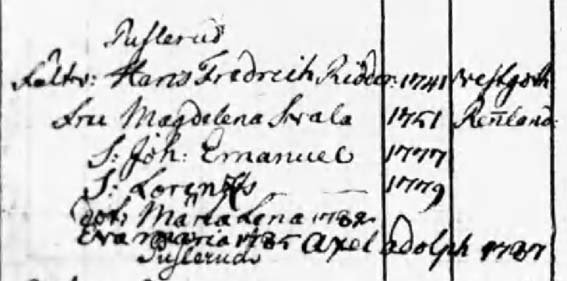 Puslerud
Fältv: Hans Fredreich Ridder: 1741 westgoth
Fru Magdelena Svala 1751 Renland:
S: Joh: Emanuel 1777
S: Lorentz 1779
dot: Maria Lena 1782
Eva maria 1785 Axel adolph 1787
Puslerud